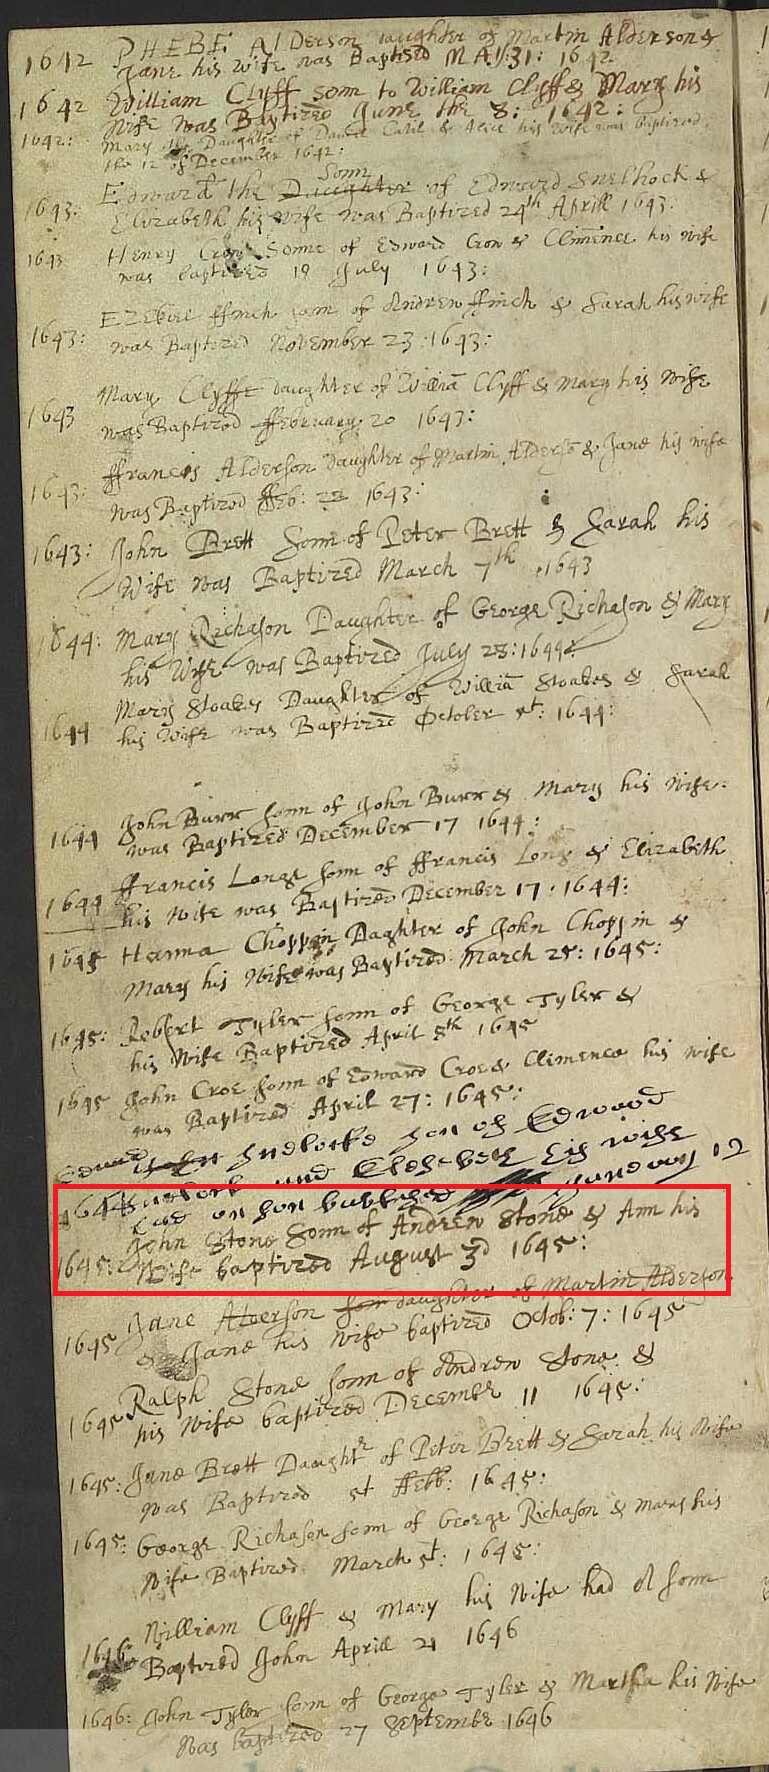 1642 PHEBE Alderson daughter of Martin Alderson &
Jane his Wife was Baptised MAY:31: 1642
1642 William Clyff Sonn to William Clyff & Mary his
Wife was Baptized June the 8: 1642:
1642: Mary the Daughter of & Alice his Wife was baptized
the 12 of December 1642:
Sonn
1643: Edward the Daughter of Edward Snelhock &
Elizabeth his Wife was Baptized 24th Aprill 1643:
1643 Henry Crow Sonne of Edward Crow & Clemence his wife
was baptized 19 July 1643:
1643: Ezekiel ffinch sonn of Andrew ffinch & Sarah his wife
was Baptized November 23:1643:
1643 Mary Clyffe daughter of Williā Clyff & Mary his Wife
was Baptized ffebruary 20 1643:
1643: ffrancis Alderson daughter of Martin Alderso & Jane his wife
was Baptized ffeb: 22 1643:
1643: John Brett Sonn of Peter Brett & Sarah his
Wife was Baptized March 7th 1643
1644: Mary Richason Daughter of George Richason & Mary
his Wife was Baptized July 28:1644:
1644 Mary Stoakes Daughter of Williā Stoakes & Sarah
his Wife was Baptized October 1644:
1644 John Burr sonn of John Burr & Mary his Wife:
was Baptized December 17 1644:
1644 ffrancis Longe sonn of ffrancis Long & Elizabeth
his Wife was Baptized December 17 . 1644:
1645 Hanna Choppin Daghter of John Choppin &
Mary his Wife was Baptized March 25: 1645:
1645: Robert Tyler sonn of George Tyler &
his Wife Baptized April 8th 1645
1645 John Croe sonn of Edward Croe & Clemence his wife
was Baptized April 27: 1645:
Edward John Snelocke son of Edwood
and Elesebeth his wife
had on son baptesed 12
1645: John Stone Sonn of Andrew Stone & Ann his
Wife baptized August 3d 1645:
1645 Jane Alderson son daughter of Martin Alderson
& Jane his Wife baptized Octob: 7: 1645
1645 Ralph Stone sonn of Andrew Stone &
his Wife baptized December 11 1645:
1645: Jane Brett Daught^r of Peter Brett & Sarah his Wife
was Baptized ffebb: 1645:
1645: George Richason sonn of George Richason & Mary his
Wife Baptized March 1645:
1646 William Clyff & Mary his Wife had A sonn
Baptized John Aprill 21 1646
1646: John Tyler sonn of George Tyler & Martha his Wife
Was baptized 27 September 1646